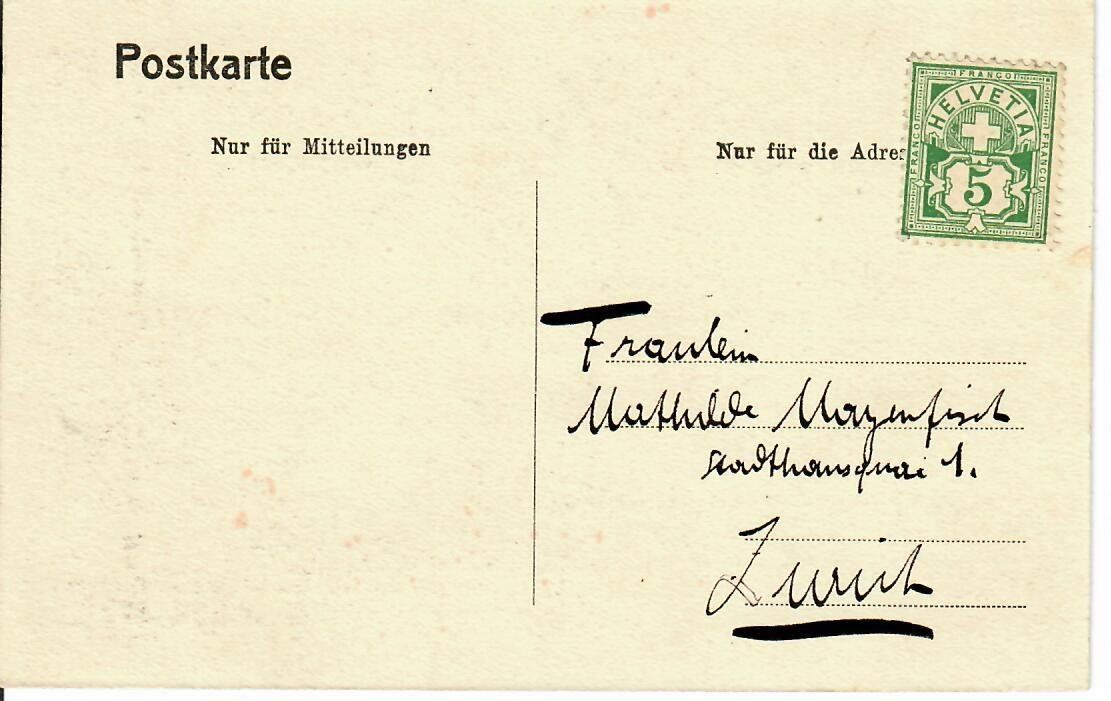 Postkarte
Nur für Mitteilungen
Nur für die Adres
FRANCO
HELVETIA
FRANCO
FRANCO
5
Fraulein
Mathilde Mayenfisch
Stadthausquai 1.
Zurich